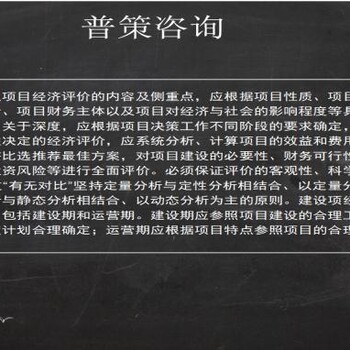 普策咨询
项目经济评价的内容及侧重点，应根据项目性质、项目
、项目财务主体以及项目对经济与社会的影响程度等具
关于深度，应根据项目决策工作不同阶段的要求确定，
决定的经济评价，应系统分析、计算项目的效益和费用
比选推荐最佳方案，对项目建设的必要性、财务可行性
资风险等进行全面评价。必须保证评价的客观性、科学
“有无对比”坚持定量分析与定性分析相结合、以定量分
与静态分析相结合、以动态分析为主的原则。建设项
包括建设期和运营期。建设期应参照项目建设的合理工
计划合理确定；运营期应根据项目特点参照项目的合理